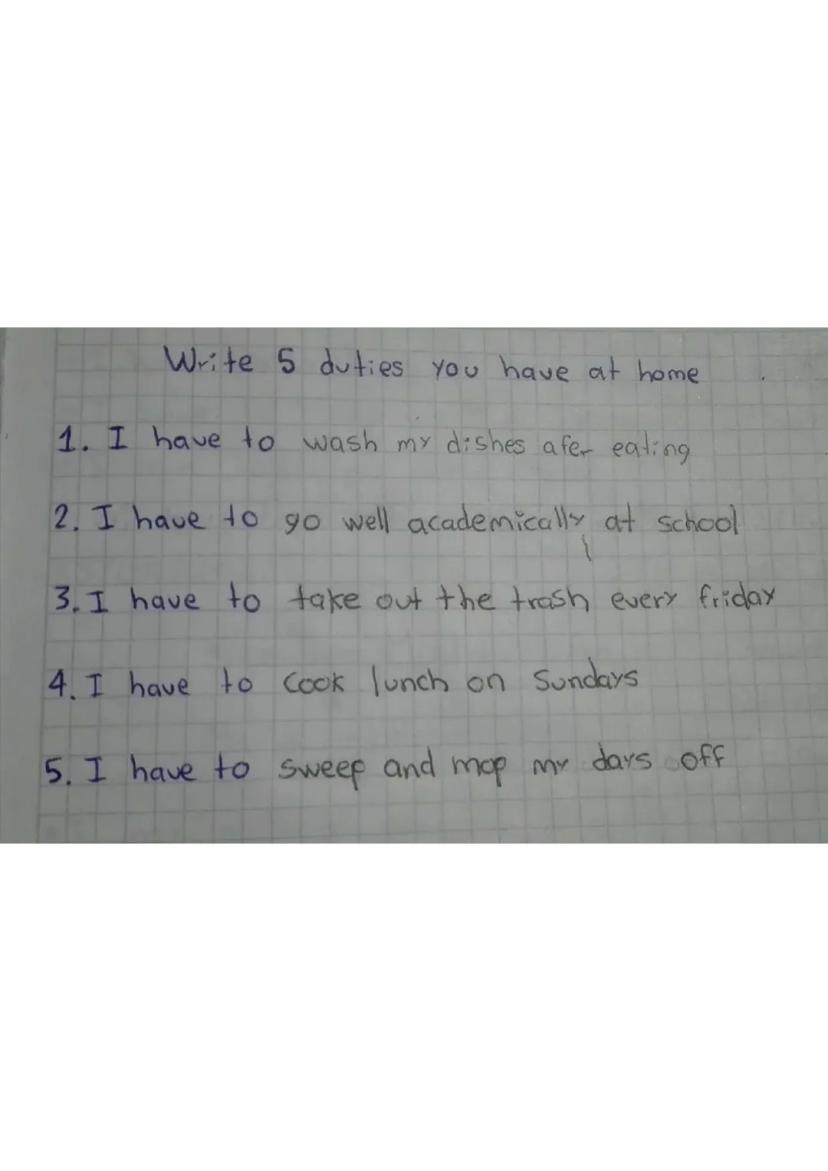 Write 5 duties you have at home
1. I have to wash my dishes afer eating
2. I have to go well academically at school
3. I have to take out the trash every friday
4. I have to cook lunch on Sundays
5. I have to sweep and mop my days off